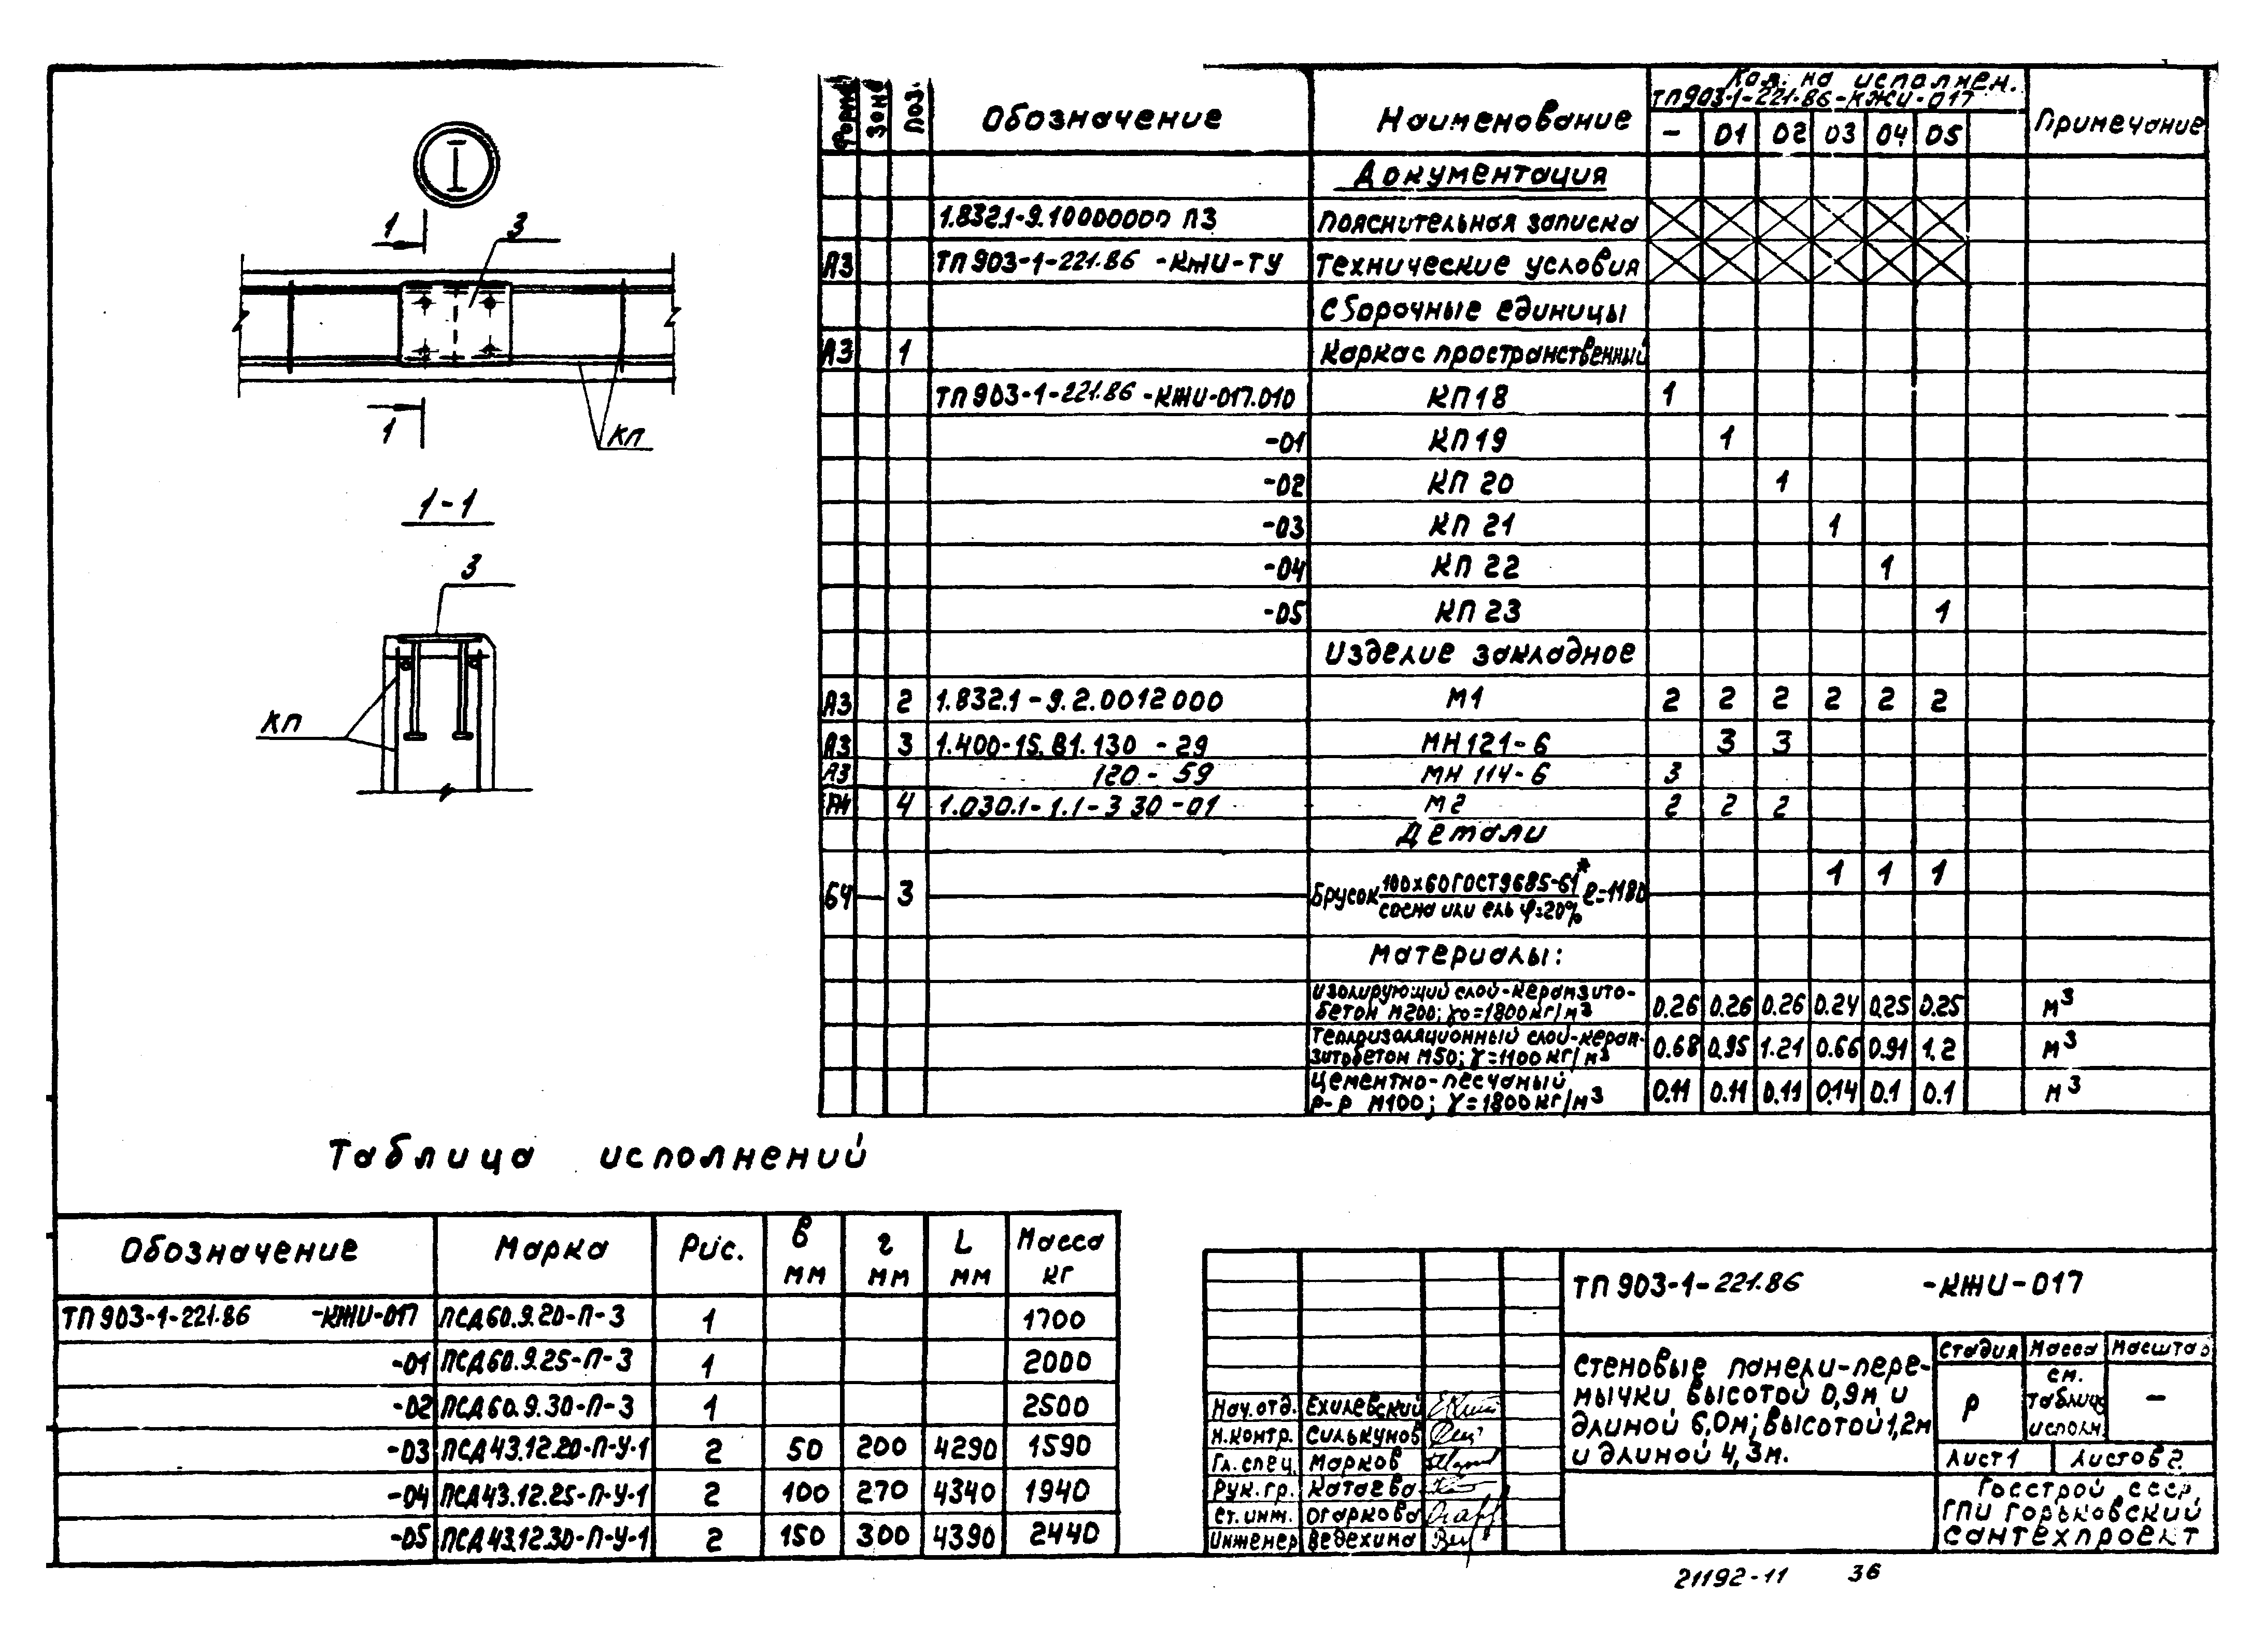 I
1
3
1
КП
1-1
3
КП
Формат Зона Поз. Обозначение Наименование Кол. на исполнен. ТП903-1-221.86-КЖИ-017 Примечание
- 01 02 03 04 05
Документация
1.832.1-9.10000000 ПЗ Пояснительная записка
А3 ТП903-1-221.86 -КЖИ-ТУ Технические условия
Сборочные единицы
А3 1 Каркас пространственный
ТП903-1-221.86-КЖИ-017.010 КП18 1
-01 КП19 1
-02 КП 20 1
-03 КП 21 1
-04 КП 22 1
-05 КП 23 1
Изделие закладное
А3 2 1.832.1-9.2.0012000 М1 2 2 2 2 2 2
А3 3 1.400-15.В1.130 -29 МН121-6 3 3
А3 120-59 МН 114-6 3
А4 4 1.030.1-1.1-3 30-01 М2 2 2 2
Детали
БЧ 3 Брусок 100х60 ГОСТ9685-61* сосна или ель φ=20% ℓ=1180 1 1 1
Материалы:
Изолирующий слой-керамзито-
бетон М200; γo=1800кг/м3 0.26 0.26 0.26 0.24 0.25 0.25 м3
Теплоизоляционный слой-керам-
зитобетон М50; γ=1100 кг/м3 0.68 0.95 1.21 0.66 0.91 1.2 м3
Цементно-песчаный
р-р М100; γ=1800кг/м3 0.11 0.11 0.11 0.14 0.1 0.1 м3
Таблица исполнений
Обозначение Марка Рис. в мм г мм L мм Масса кг
ТП903-1-221.86 -КЖИ-017 ПСД60.9.20-П-3 1 1700
-01 ПСД60.9.25-П-3 1 2000
-02 ПСД60.9.30-П-3 1 2500
-03 ПСД43.12.20-П-У-1 2 50 200 4290 1590
-04 ПСД43.12.25-П-У-1 2 100 270 4340 1940
-05 ПСД43.12.30-П-У-1 2 150 300 4390 2440
ТП903-1-221.86 -КЖИ-017
Стеновые панели-пере-
мычки высотой 0,9м и
длиной 6,0м; высотой 1,2м
и длиной 4,3м.
Стадия Масса Масштаб
Р см. таблицу исполн. -
Лист 1 Листов 2.
Госстрой СССР,
ГПИ Горьковский
Сантехпроект
Нач.отд. Ехилевский
Н.контр. Силькунов
Гл.спец. Марков
Рук.гр. Катаева
Ст.инж. Огаркова
Инженер Ведехина
21192-11 36